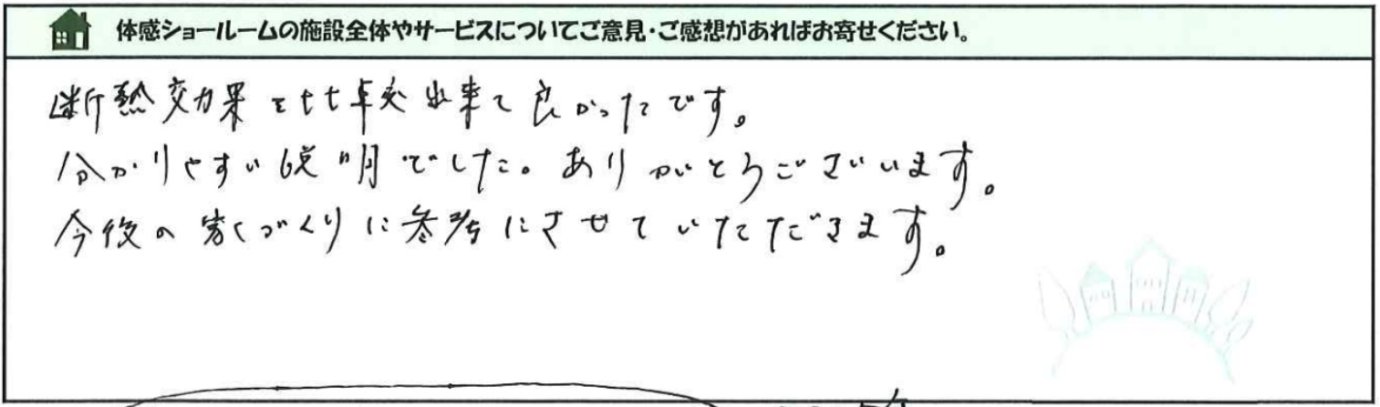 体感ショールームの施設全体やサービスについてご意見・ご感想があればお寄せください。
断熱効果 出来て良かったです。
分かりやすい説明でした。ありがとうございます。
今後の家づくりに参考にさせていただきます。